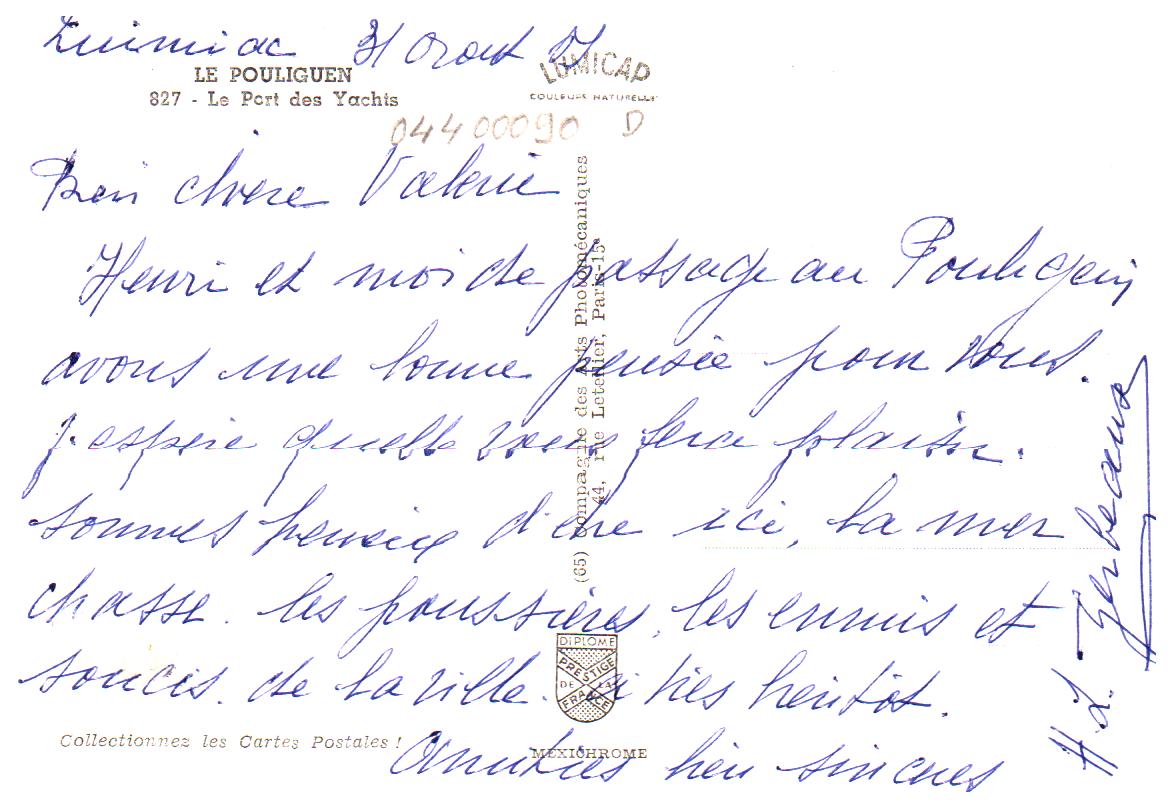 31 Aout
LE POULIGUEN
827 - Le Port des Yachts
LUMICAP
COULEURS NATURELLES
04400090 D
Bien chère Valérie
Henri et moi de passage au Pouliguen
avons une bonne pensée pour vous.
J'espère qu'elle vous fera plaisir.
sommes heureux d'être ici, la mer
chasse les poussières, les ennuis et
soucis de la ville. à très bientôt.
Amitiés bien sincères
H. L.
(65) Compagnie des Arts Photomécaniques
44, rue Letellier, Paris-15e
DIPLOME
PRESTIGE
DE LA
FRANCE
Collectionnez les Cartes Postales !
MEXICHROME